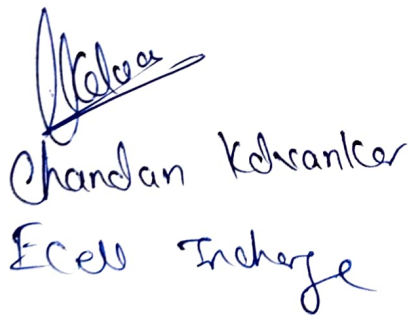 Chandan Kolvankar
ECell Incharge